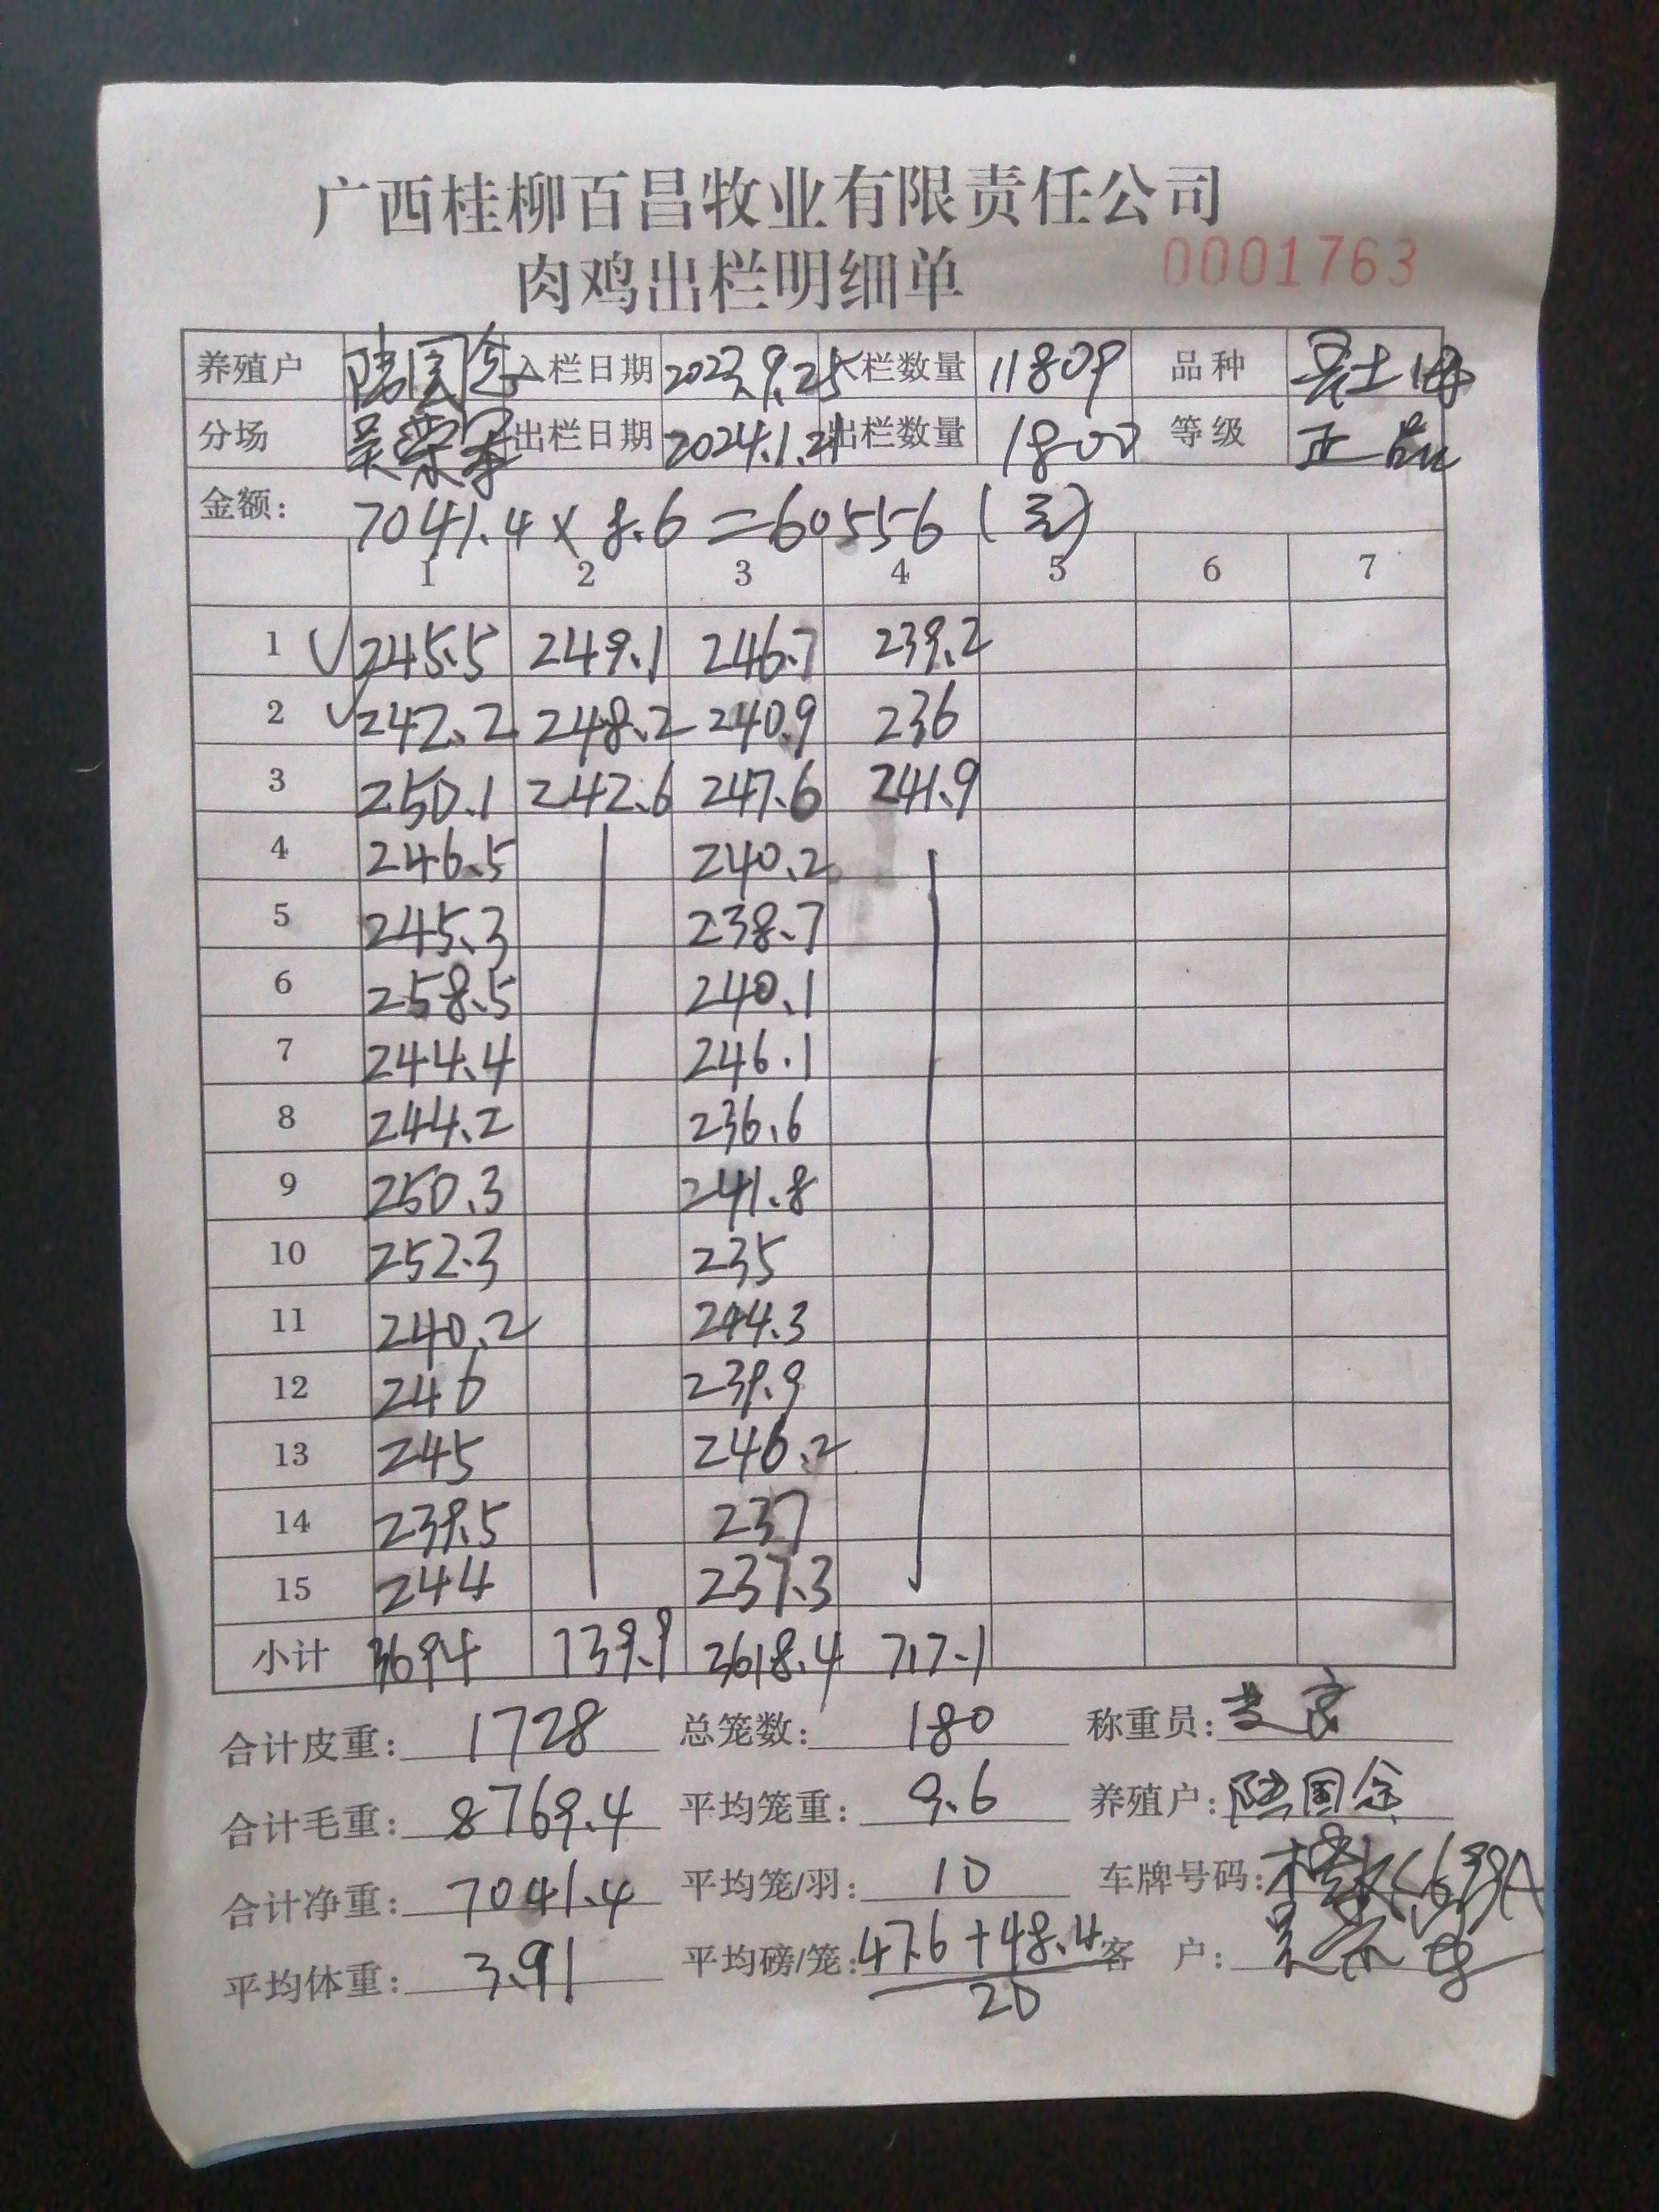 广西桂柳百昌牧业有限责任公司
肉鸡出栏明细单 0001763
养殖户 陆国念 入栏日期 2023.9.25 栏数量 11809 品种
分场 吴荣 出栏日期 2024.1.21 出栏数量 1800 等级 正品
金额: 7041.4 × 8.6 = 60556 (元)
1 2 3 4 5 6 7
1 245.5 249.1 246.7 239.2
2 242.2 248.2 240.9 236
3 250.1 242.6 247.6 241.9
4 246.5 240.2
5 245.3 238.7
6 258.5 240.1
7 244.4 246.1
8 244.2 236.6
9 250.3 241.8
10 252.3 235
11 240.2 244.3
12 246 239.9
13 245 246.2
14 239.5 237
15 244 237.3
小计 3694 739.9 3618.4 717.1
合计皮重: 1728 总笼数: 180 称重员:
合计毛重: 8769.4 平均笼重: 9.6 养殖户: 陆国念
合计净重: 7041.4 平均笼/羽: 10 车牌号码:
平均体重: 3.91 平均磅/笼: 47.6+48.4 客 户:
20